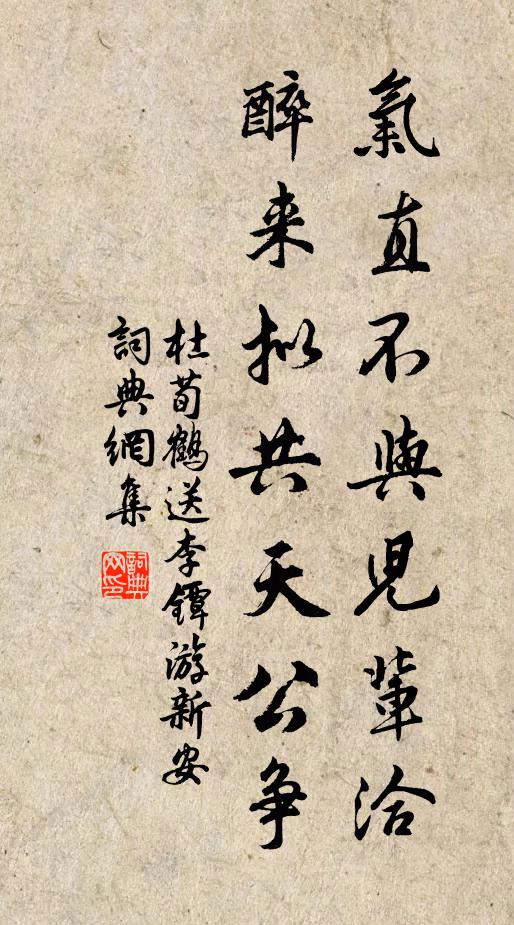 氣直不與兒輩洽
醉来拟共天公争
杜荀鶴送李鐔游新安
詞典網集
詞典网印